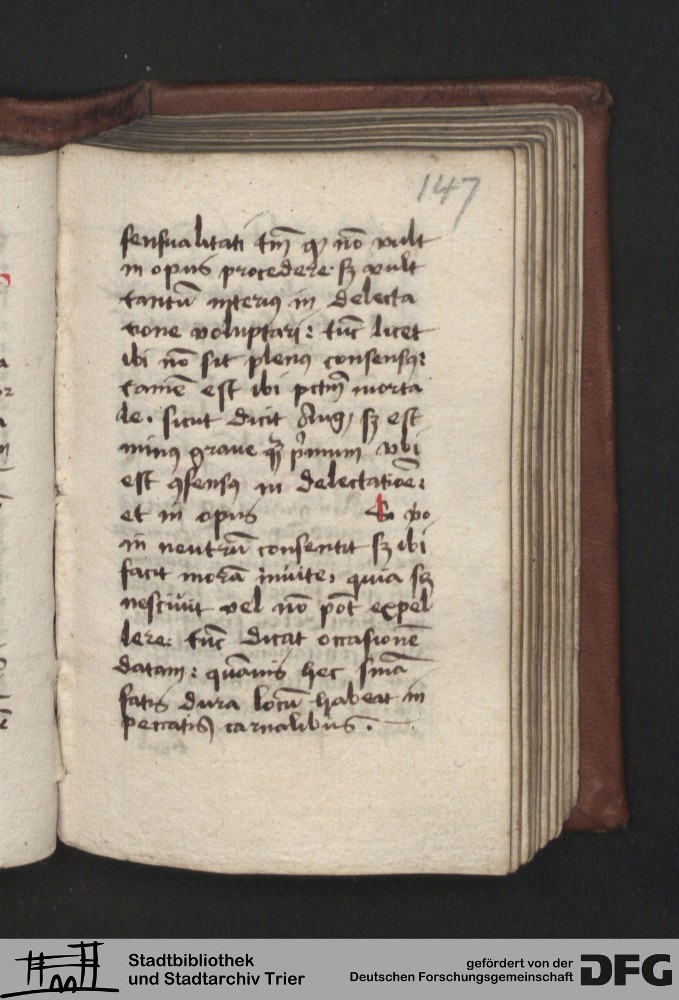 147
sensualitati tm̄ qꝫ nō vult
in opus procedere: sꝫ vult
tantū interiꝰ in delecta
tione voluptari: tūc licet
ibi nō sit plenꝰ consensꝰ:
tamē est ibi pctm̄ morta
le. sicut dicit Aug, sꝫ est
minꝰ graue qꝫ pͥmum vbi
est ꝯsensꝰ in delectatiōe:
et in opus Si vo
in neutrū consentit sꝫ ibi
facit morā inuite, quia
nesciuit vel nō pōt expel
lere: tūc dicat occasionē
datam: quāuis hec
satis dura locū habeat in
peccatis carnalibus.
Stadtbibliothek
und Stadtarchiv Trier
gefördert von der
Deutschen Forschungsgemeinschaft
DFG